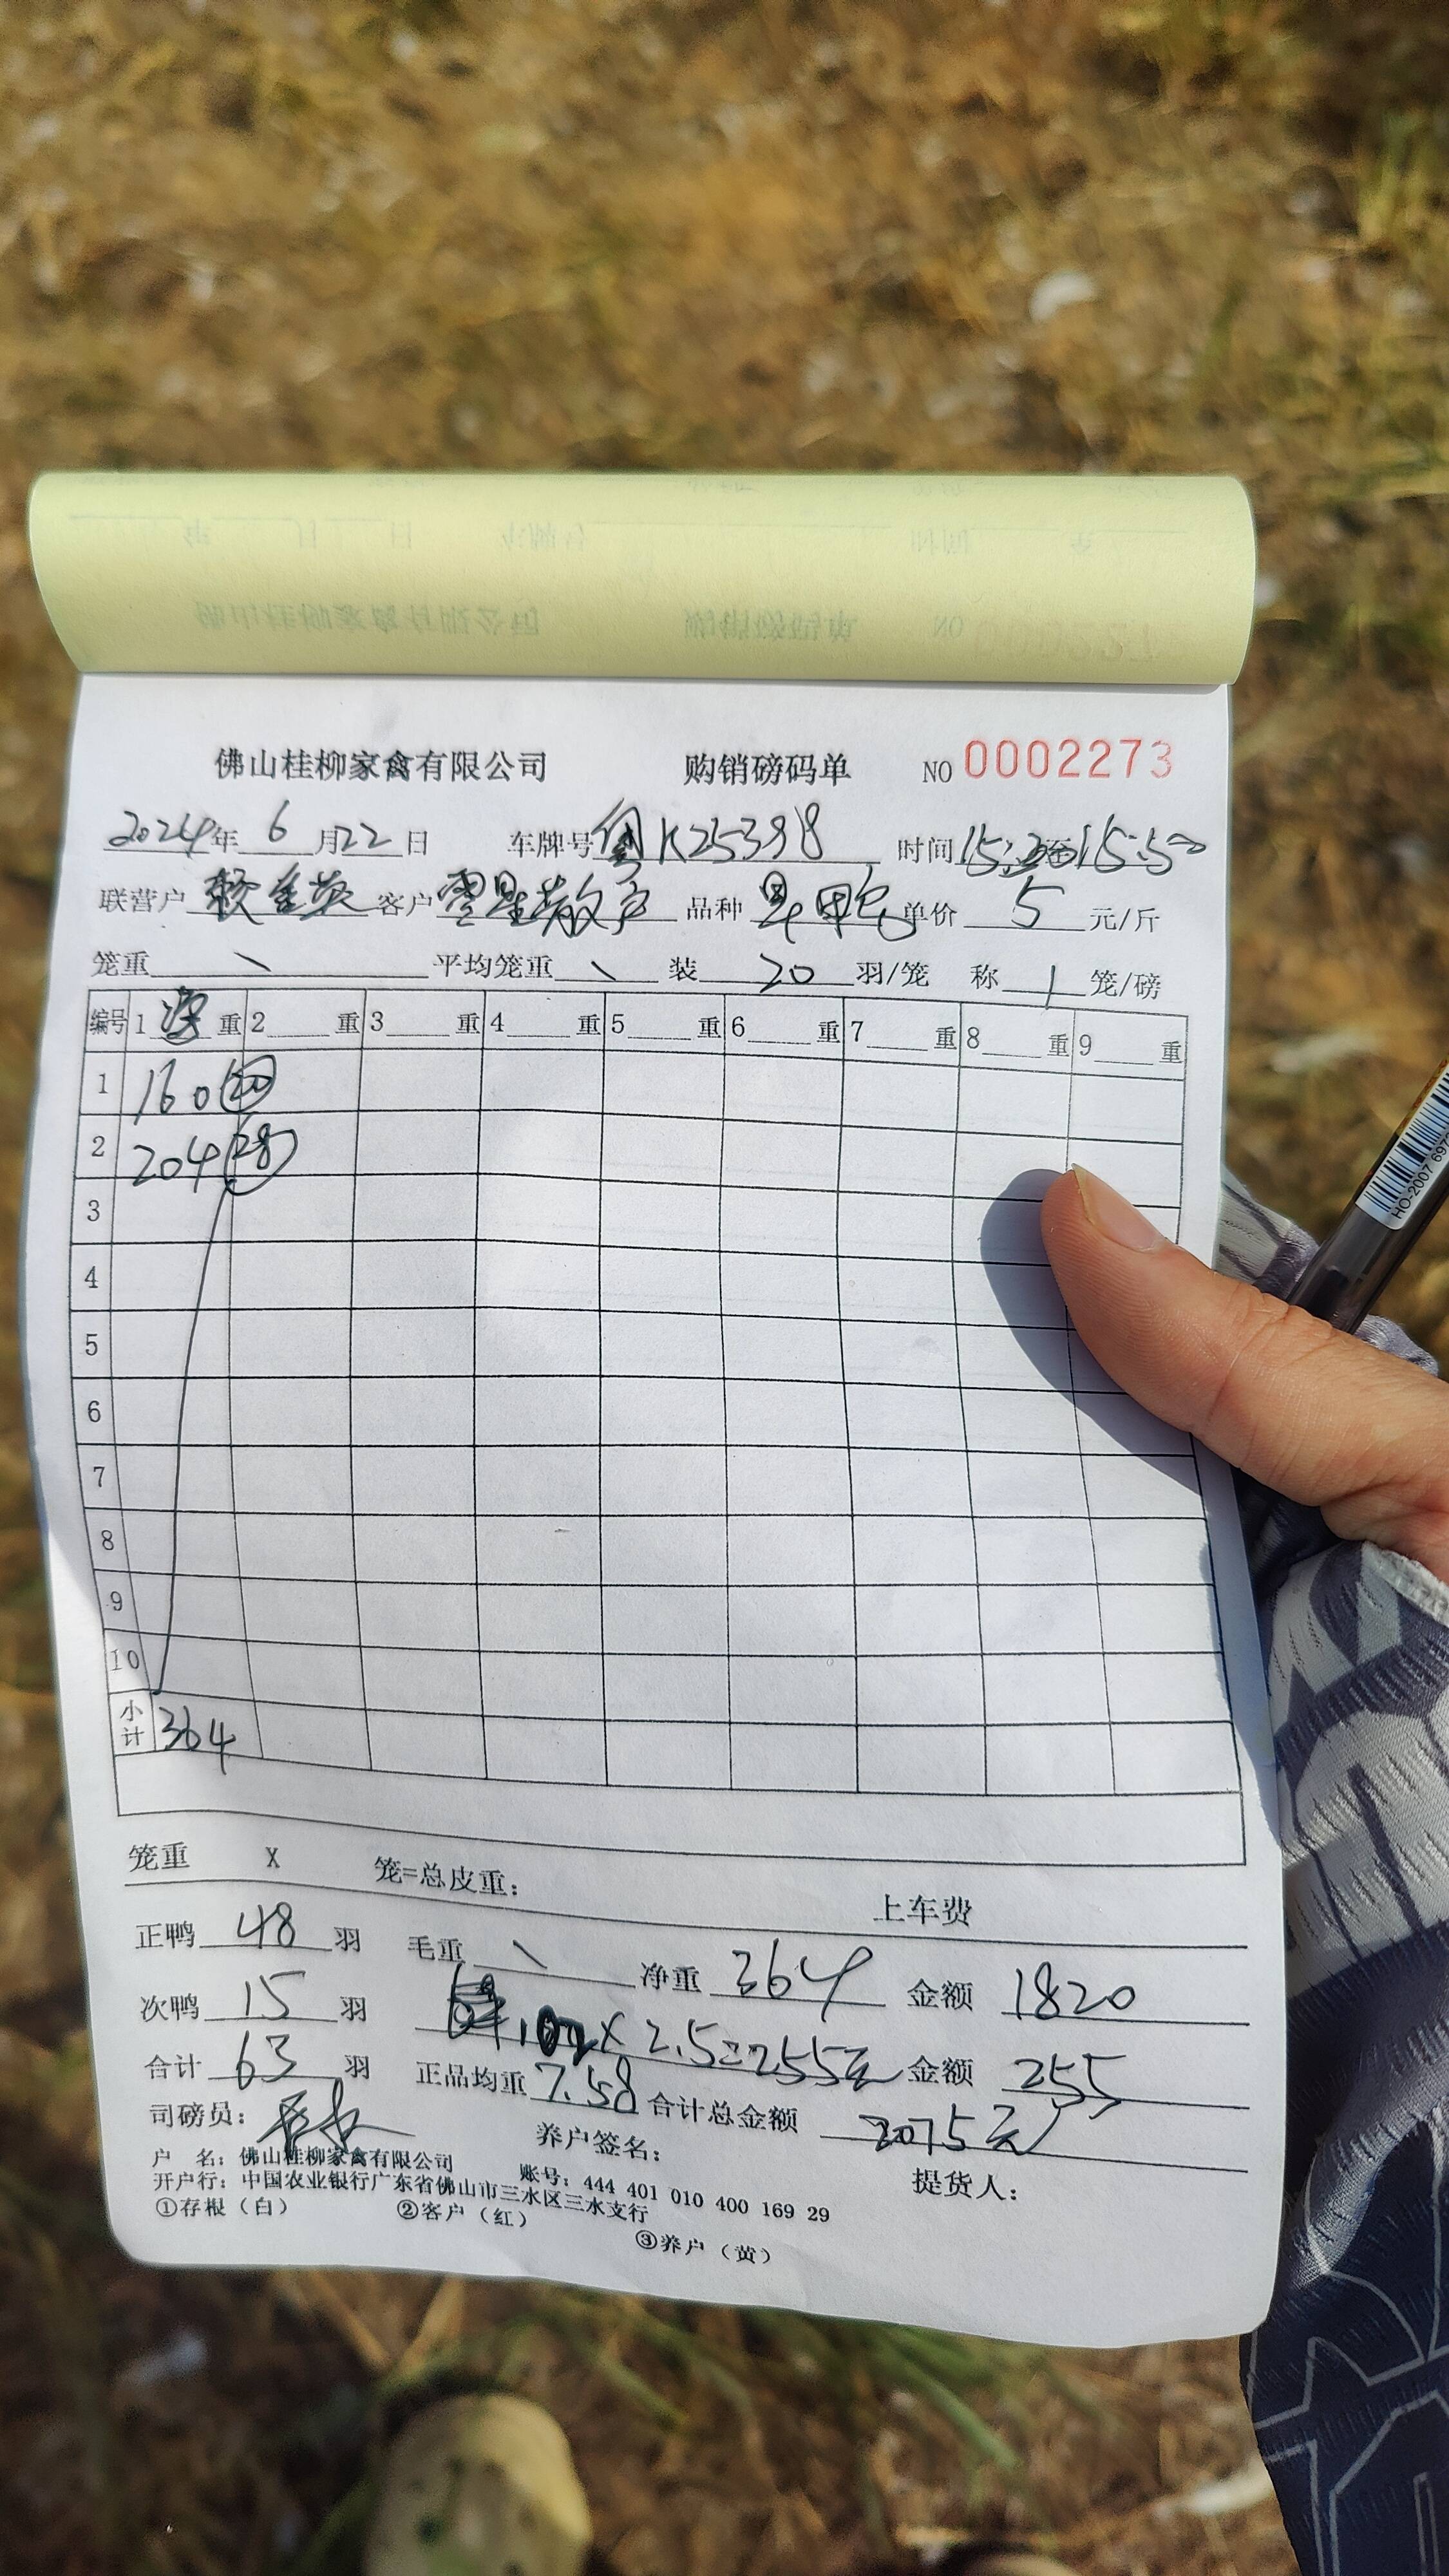 佛山桂柳家禽有限公司 购销磅码单 NO 0002273
2024年 6 月22日 车牌号 粤K25398 时间15:20至15:50
联营户 赖金英 客户 零星散户 品种 单价 5 元/斤
笼重 \ 平均笼重 \ 装 20 羽/笼 称 1 笼/磅
编号 1 净 重 2 重 3 重 4 重 5 重 6 重 7 重 8 重 9 重
1 160 (20)
2 204 (28)
3
4
5
6
7
8
9
10
小计 364
笼重 X 笼=总皮重： 上车费
正鸭 48 羽 毛重 \ 净重 364 金额 1820
次鸭 15 羽 102 X 2.5=255元 金额 255
合计 63 羽 正品均重 7.58 合计总金额 2075元
司磅员： 养户签名： 提货人：
户 名：佛山桂柳家禽有限公司 账号：444 401 010 400 169 29
开户行：中国农业银行广东省佛山市三水区三水支行
①存根（白） ②客户（红） ③养户（黄）
HO-2007 697